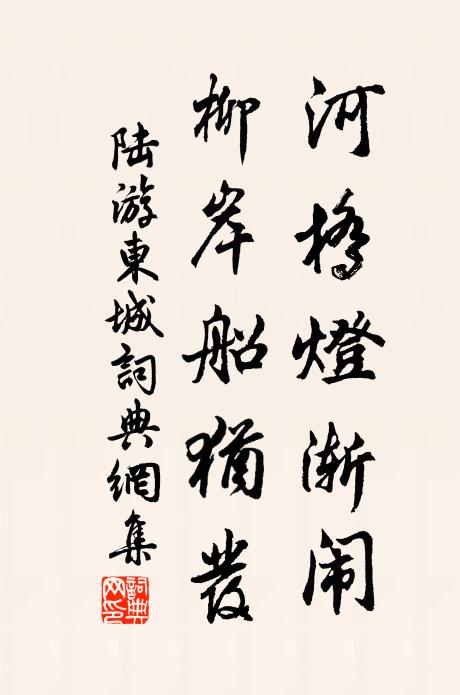 河橋燈渐闹
柳岸船猶發
陆游東城詞典網集
詞典网印